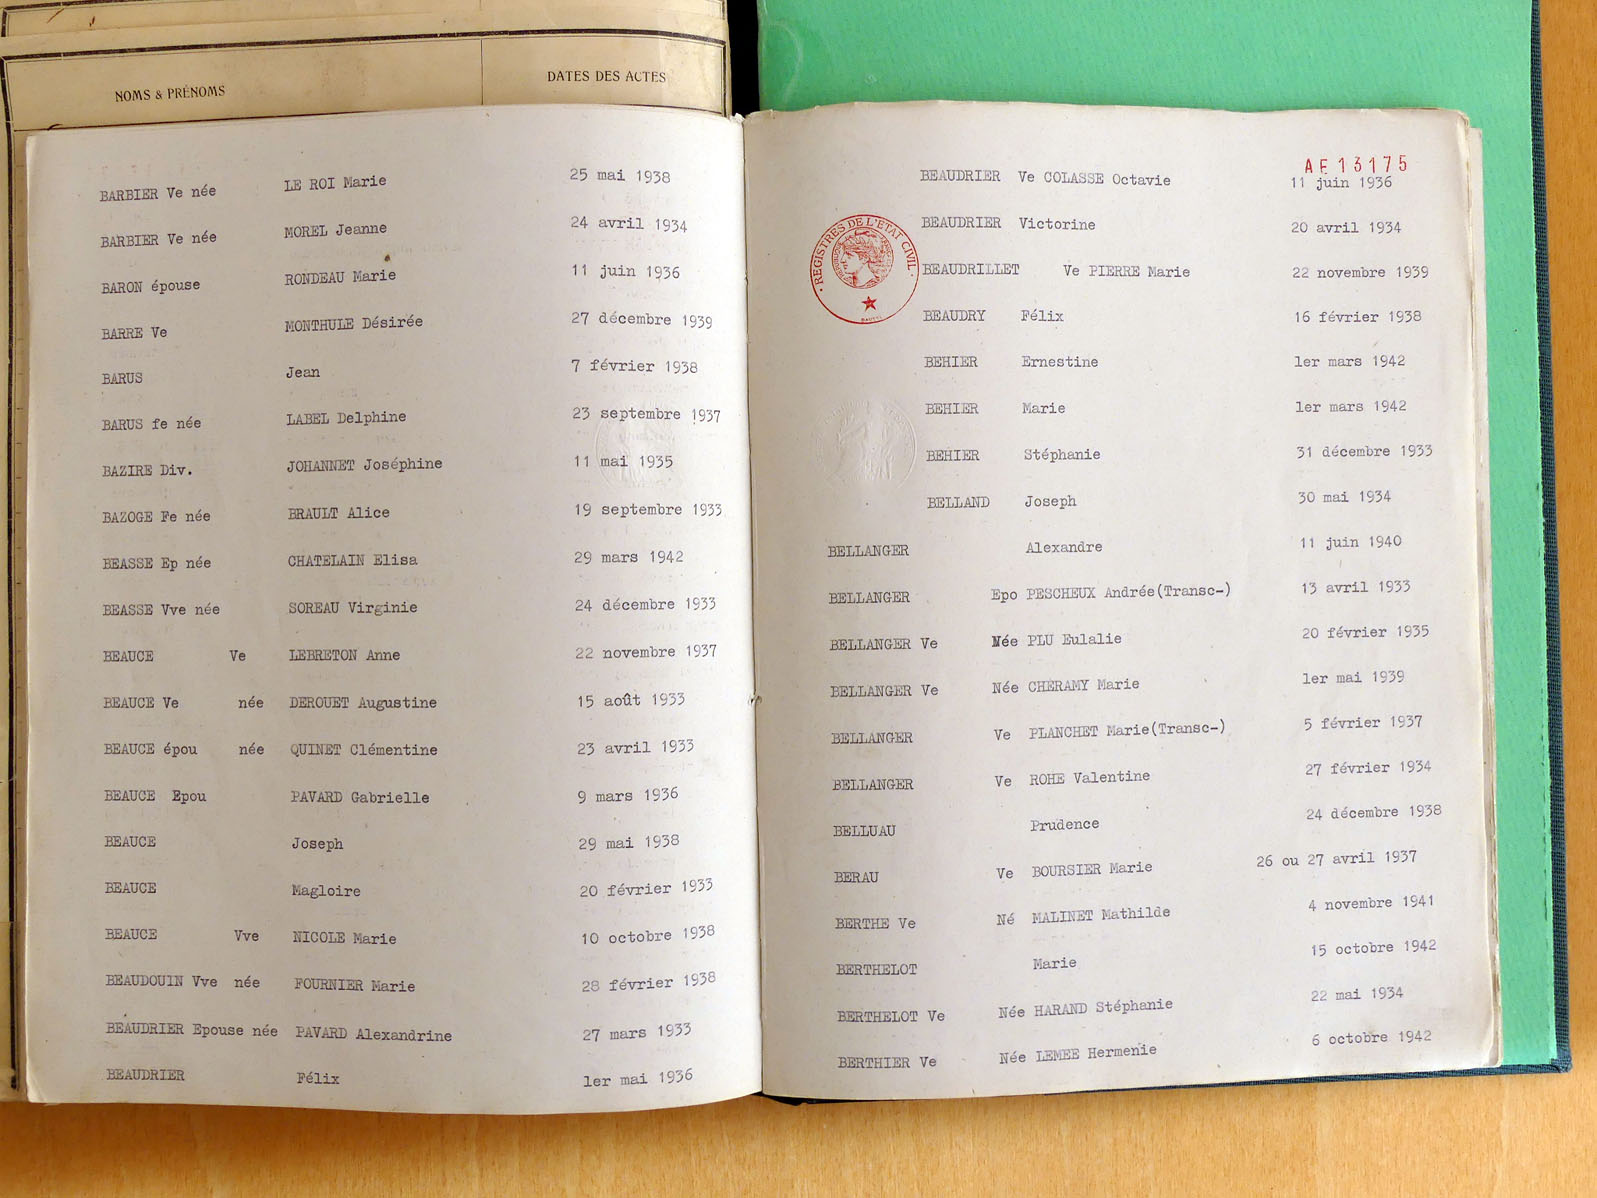 NOMS & PRÉNOMS DATES DES ACTES
BARBIER Ve née LE ROI Marie 25 mai 1938
BARBIER Ve née MOREL Jeanne 24 avril 1934
BARON épouse RONDEAU Marie 11 juin 1936
BARRE Ve MONTHULE Désirée 27 décembre 1939
BARUS Jean 7 février 1938
BARUS fe née LABEL Delphine 23 septembre 1937
BAZIRE Div. JOHANNET Joséphine 11 mai 1935
BAZOGE Fe née BRAULT Alice 19 septembre 1933
BEASSE Ep née CHATELAIN Elisa 29 mars 1942
BEASSE Vve née SOREAU Virginie 24 décembre 1933
BEAUCE Ve LEBRETON Anne 22 novembre 1937
BEAUCE Ve née DEROUET Augustine 15 août 1933
BEAUCE épou née QUINET Clémentine 23 avril 1933
BEAUCE Epou PAVARD Gabrielle 9 mars 1936
BEAUCE Joseph 29 mai 1938
BEAUCE Magloire 20 février 1933
BEAUCE Vve NICOLE Marie 10 octobre 1938
BEAUDOUIN Vve née FOURNIER Marie 28 février 1938
BEAUDRIER Epouse née PAVARD Alexandrine 27 mars 1933
BEAUDRIER Félix 1er mai 1936
AE13175
BEAUDRIER Ve COLASSE Octavie 11 juin 1936
BEAUDRIER Victorine 20 avril 1934
REGISTRES DE L'ETAT CIVIL
BEAUDRILLET Ve PIERRE Marie 22 novembre 1939
BEAUDRY Félix 16 février 1938
BEHIER Ernestine 1er mars 1942
BEHIER Marie 1er mars 1942
BEHIER Stéphanie 31 décembre 1933
BELLAND Joseph 30 mai 1934
BELLANGER Alexandre 11 juin 1940
BELLANGER Epo PESCHEUX Andrée(Transc-) 13 avril 1933
BELLANGER Ve Née PLU Eulalie 20 février 1935
BELLANGER Ve Née CHERAMY Marie 1er mai 1939
BELLANGER Ve PLANCHET Marie(Transc-) 5 février 1937
BELLANGER Ve ROHE Valentine 27 février 1934
BELLUAU Prudence 24 décembre 1938
BERAU Ve BOURSIER Marie 26 ou 27 avril 1937
BERTHE Ve Né MALINET Mathilde 4 novembre 1941
BERTHELOT Marie 15 octobre 1942
BERTHELOT Ve Née HARAND Stéphanie 22 mai 1934
BERTHIER Ve Née LEMEE Hermenie 6 octobre 1942